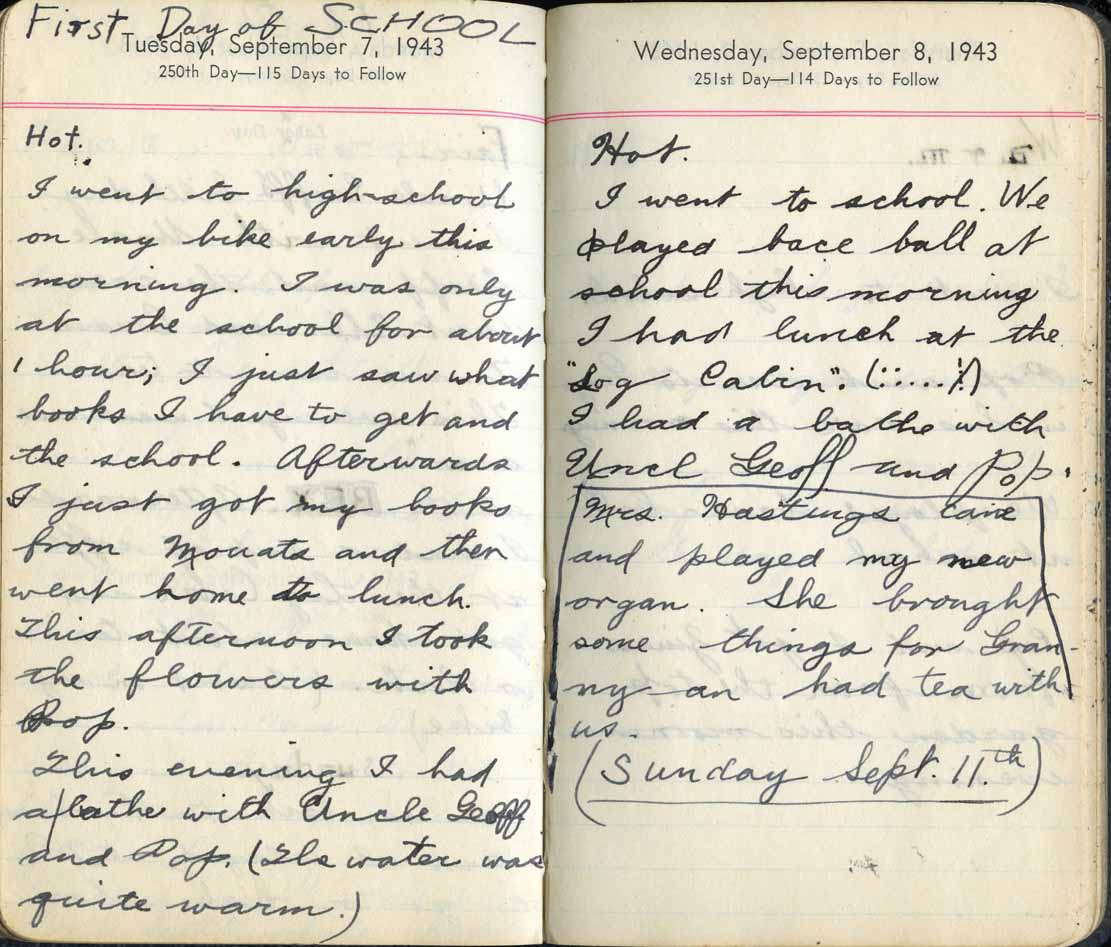 First Day of SCHOOL
Tuesday, September 7, 1943
250th Day—115 Days to Follow
Hot.
I went to high-school
on my bike early this
morning. I was only
at the school for about
1 hour; I just saw what
books I have to get and
the school. Afterwards
I just got my books
from Mouats and then
went home to lunch.
This afternoon I took
the flowers with
Pop.
This evening I had
a bathe with Uncle Geoff
and Pop. (The water was
quite warm.)
Wednesday, September 8, 1943
251st Day—114 Days to Follow
Hot.
I went to school. We
played bace ball at
school this morning
I had lunch at the
"Log Cabin". (::....!)
I had a bathe with
Uncl Geoff and Pop.
Mrs. Hastings came
and played my new
organ. She brought
some things for Gran-
ny an had tea with
us.
(Sunday Sept. 11th)